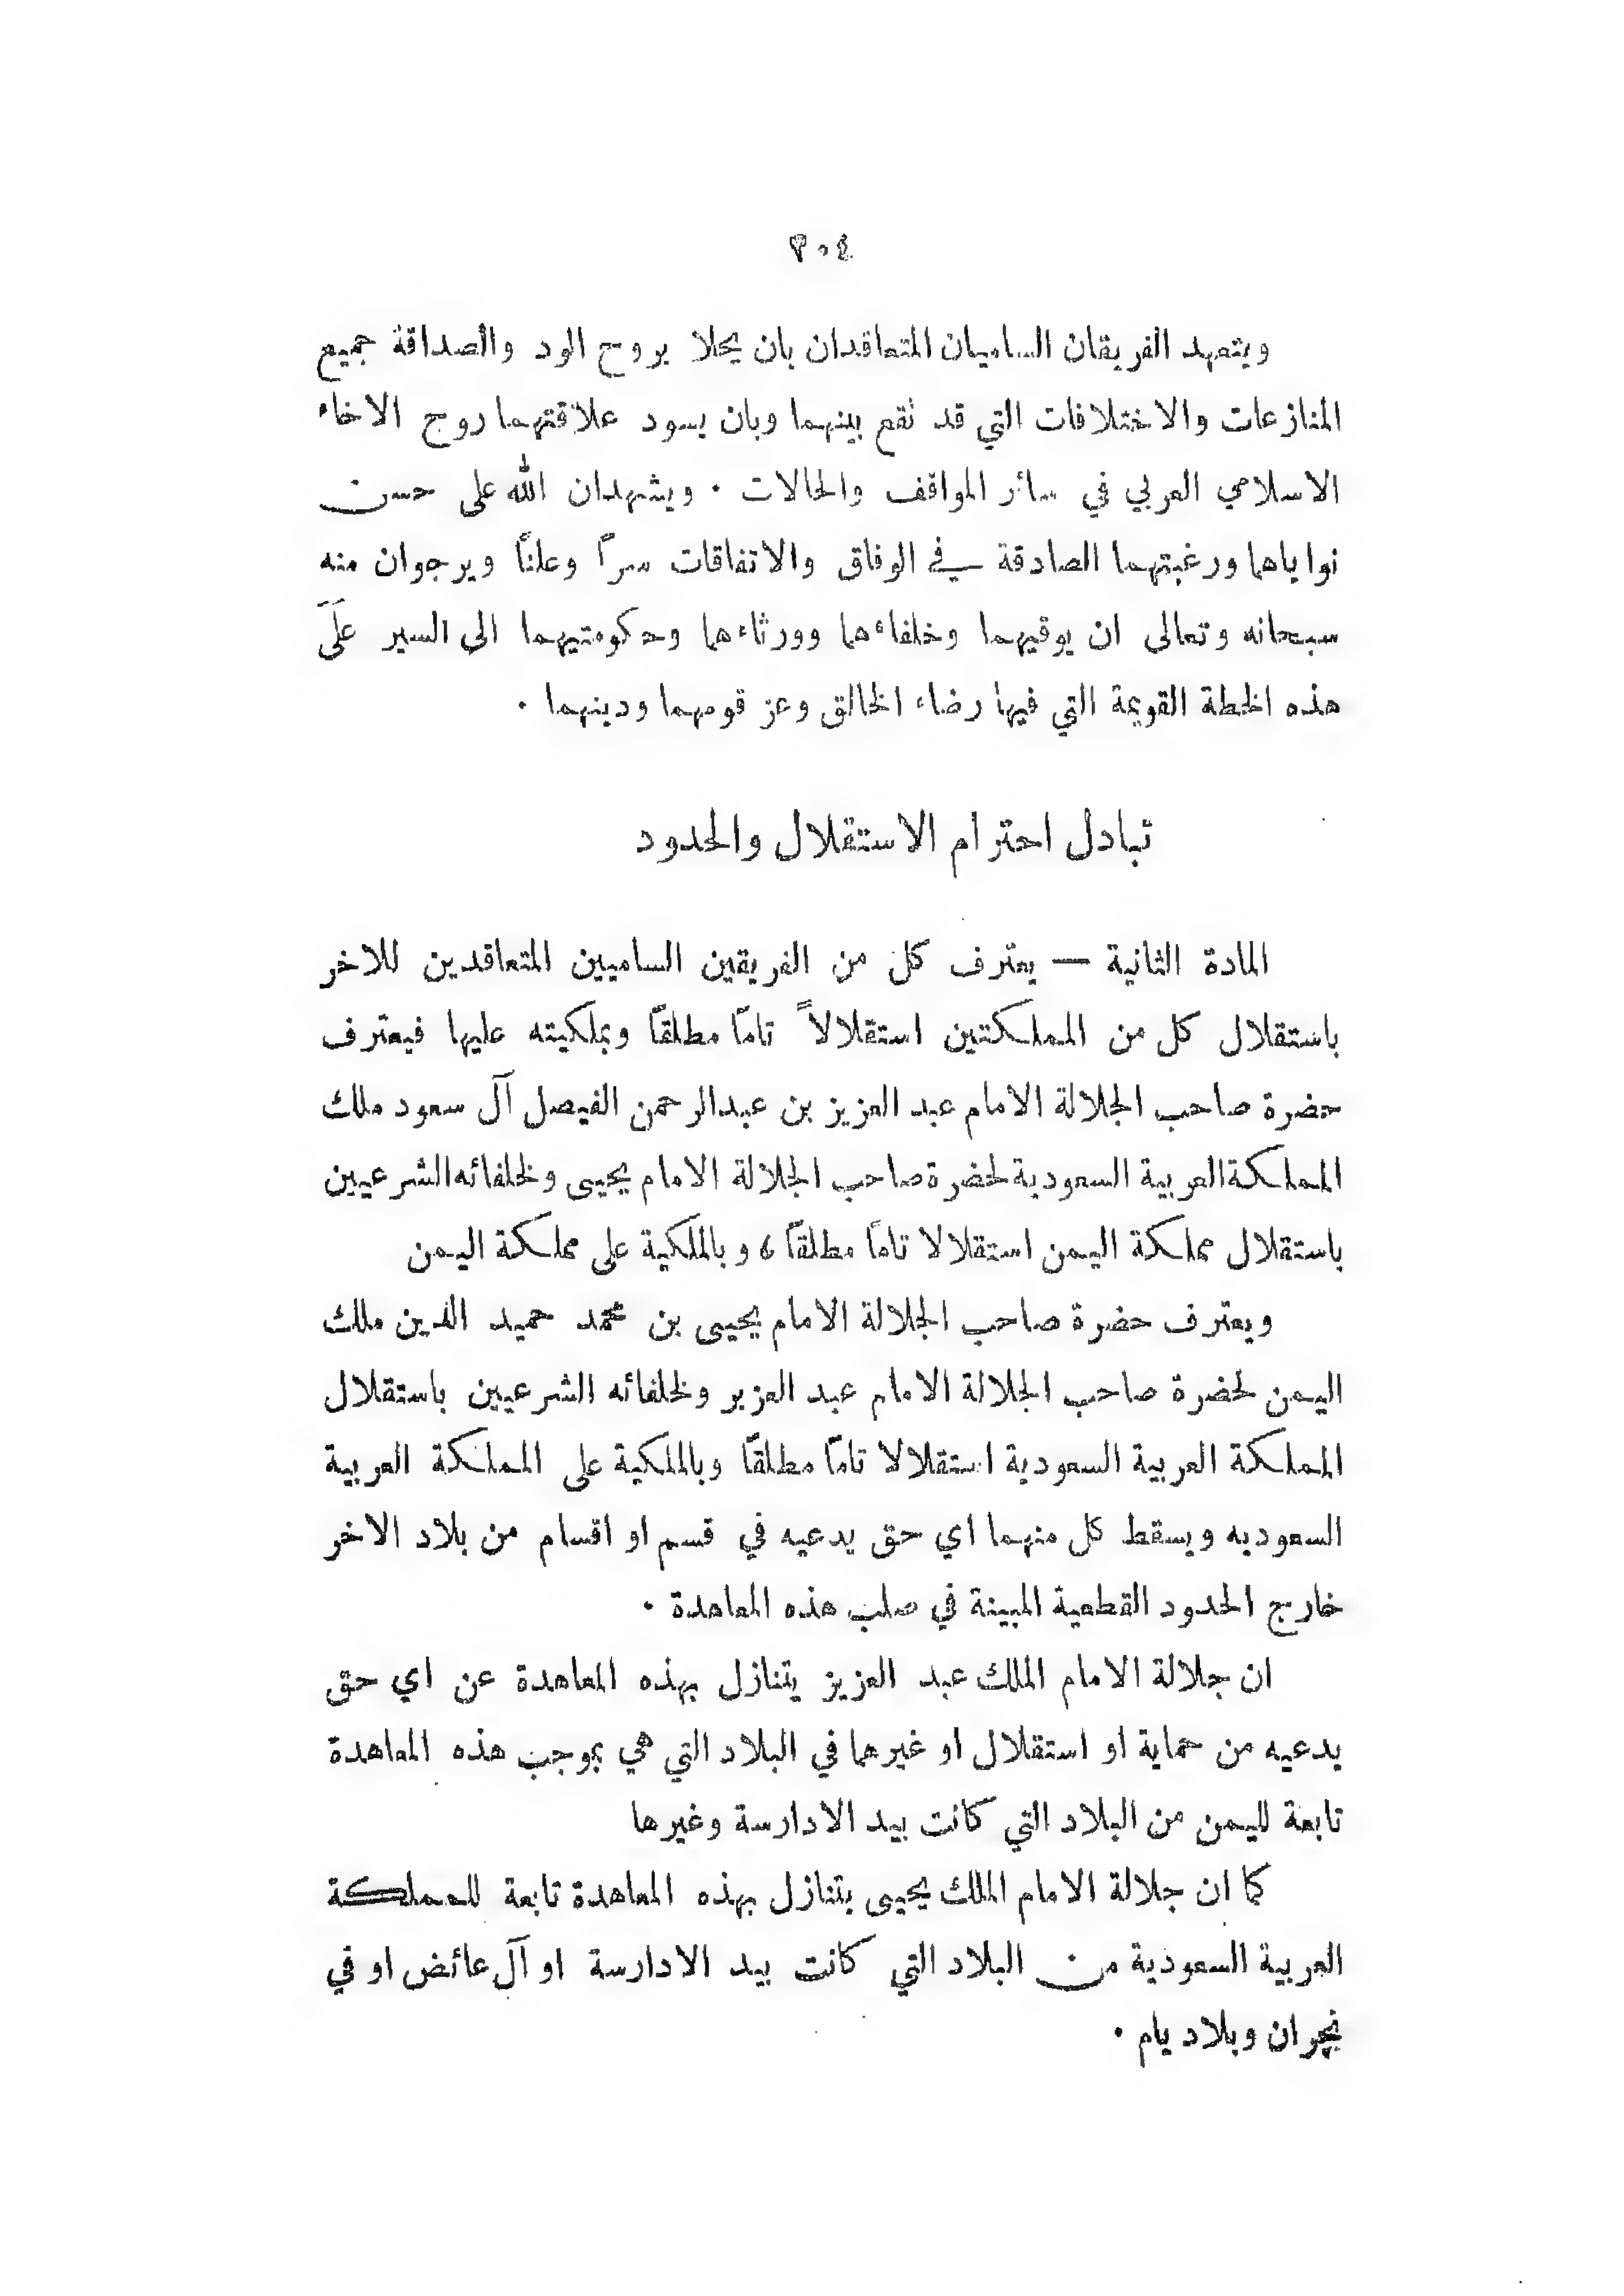 ٣٠٤
ويتعهد الفريقان الساميان المتعاقدان بان يحلا بروح الود والصداقة جميع
المنازعات والاختلافات التي قد تقع بينهما وبان يسود علاقتهما روح الاخاء
الاسلامي العربي في سائر المواقف والحالات . ويشهدان الله على حسن
نواياهما ورغبتهما الصادقة في الوفاق والاتفاقات سراً وعلناً ويرجوان منه
سبحانه وتعالى ان يوقيهما وخلفاءهما وورثاءهما وحكومتيهما الى السير علَى
هذه الخطة القويمة التي فيها رضاء الخالق وعز قومهما ودينهما .
تبادل احترام الاستقلال والحدود
المادة الثانية — يعترف كل من الفريقين الساميين المتعاقدين للاخر
باستقلال كل من المملكتين استقلالاً تاماً مطلقاً وبملكيته عليها فيعترف
حضرة صاحب الجلالة الامام عبد العزيز بن عبدالرحمن الفيصل آل سعود ملك
المملكة العربية السعودية لحضرة صاحب الجلالة الامام يحيى ولخلفائه الشرعيين
باستقلال مملكة اليمن استقلالا تاماً مطلقاً ، وبالملكية على مملكة اليمن
ويعترف حضرة صاحب الجلالة الامام يحيى بن محمد حميد الدين ملك
اليمن لحضرة صاحب الجلالة الامام عبد العزيز ولخلفائه الشرعيين باستقلال
المملكة العربية السعودية استقلالا تاماً مطلقاً وبالملكية على المملكة العربية
السعوديه ويسقط كل منهما اي حق يدعيه في قسم او اقسام من بلاد الاخر
خارج الحدود القطعية المبينة في صلب هذه المعاهدة .
ان جلالة الامام الملك عبد العزيز يتنازل بهذه المعاهدة عن اي حق
يدعيه من حماية او استقلال او غيرهما في البلاد التي هي بموجب هذه المعاهدة
تابعة لليمن من البلاد التي كانت بيد الادارسة وغيرها
كما ان جلالة الامام الملك يحيى يتنازل بهذه المعاهدة تابعة للمملكة
العربية السعودية من البلاد التي كانت بيد الادارسة او آل عائض او في
نجران وبلاد يام .